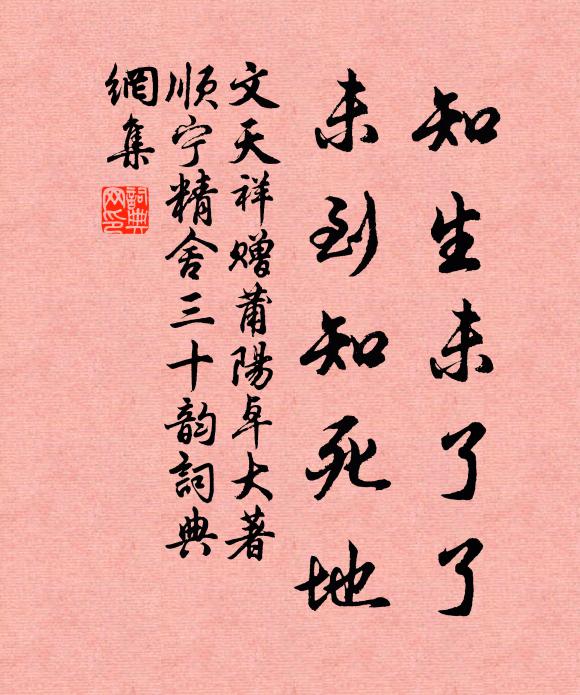 知生未了了
未到知死地
文天祥贈莆陽卓大著
順宁精舍三十韵詞典
網集
詞典
网印